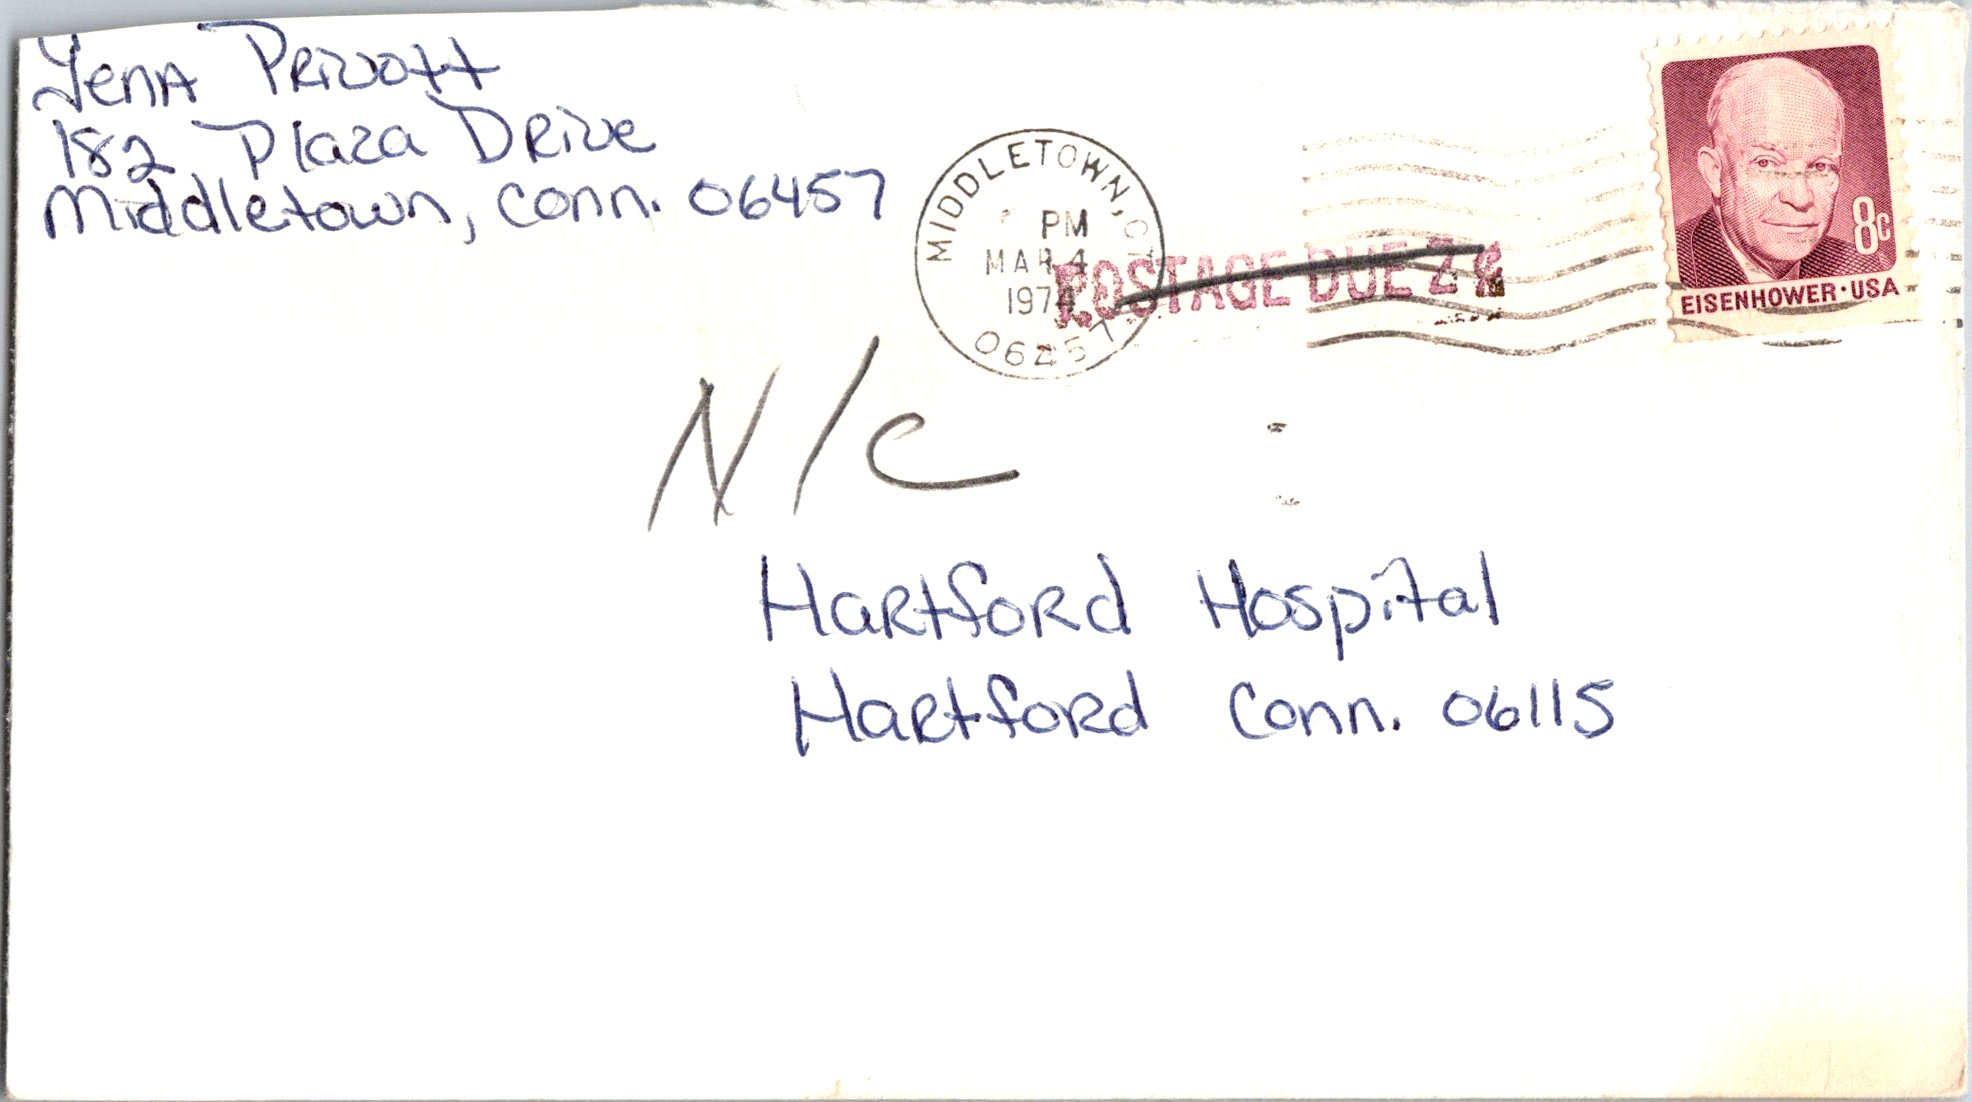 Jena Privott
182 Plaza Drive
Middletown, Conn. 06457
MIDDLETOWN, CT
PM
MAR 4
1974
06457
POSTAGE DUE 2¢
8c
EISENHOWER·USA
N/C
Hartford Hospital
Hartford Conn. 06115